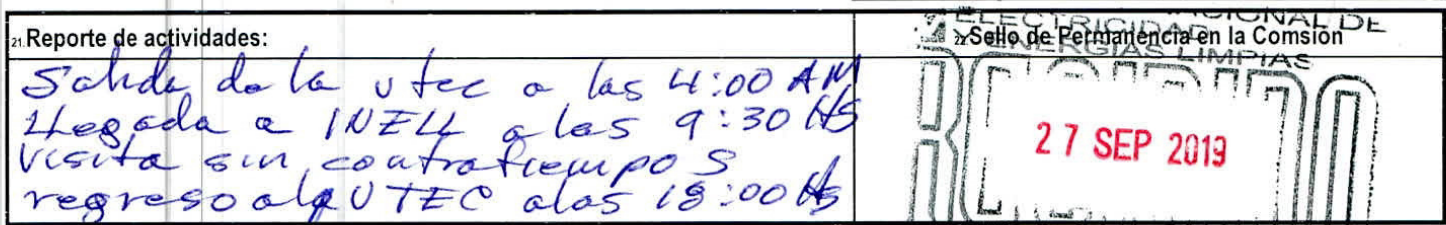 21. Reporte de actividades:
Salida de la utec a las 4:00 AM
Llegada a INELL a las 9:30 HS
Visita sin contratiempos
regreso a la UTEC a las 18:00 Hs
22. Sello de Permanencia en la Comsión
ELECTRICIDAD NACIONAL DE
Y ENERGIAS LIMPIAS
27 SEP 2019